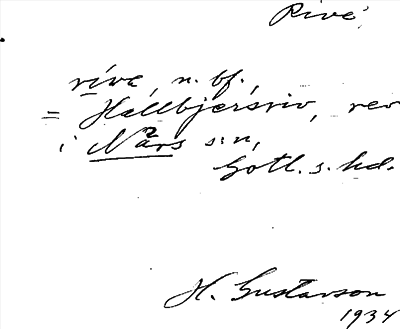 Rive
rive, n. bf.,
= Hallbjersriv, rev
i När s:n,
Gotl. s. hd.
H. Gustavson
1934